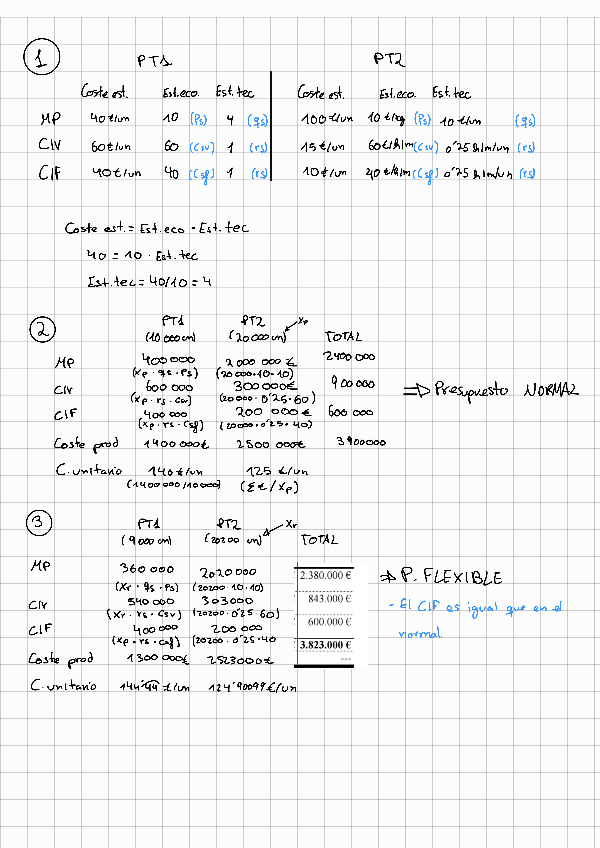 1 PT1 PT2
Coste est. Est.eco. Est.tec Coste est. Est.eco. Est.tec
MP 40€/un 10 (Ps) 4 (qs) 100€/un 10€/kg (Ps) 10€/un (qs)
CIV 60€/un 60 (Csv) 1 (rs) 15€/un 60€/h/m (Csv) 0'25h/m/un (rs)
CIF 40€/un 40 (Csf) 1 (rs) 10€/un 40€/h/m (Csf) 0'25h/m/un (rs)
Coste est. = Est.eco · Est.tec
40 = 10 · Est.tec
Est.tec = 40/10 = 4
2 PT1 PT2 Xp
(10 000 un) (20 000 un) TOTAL
MP 400 000 2 000 000 € 2400 000
(Xp · qs · Ps) (20 000·10·10)
CIV 600 000 300 000€ 900 000
(Xp · rs · Csv) (20 000·0'25·60)
CIF 400 000 200 000 € 600 000
(Xp · rs · Csf) (20000·0'25·40)
Coste prod 1400 000€ 2500 000€ 3900000
⇒ Presupuesto NORMAL
C.unitario 140€/un 125 €/un
(1400 000/10000) (Σ€/Xp)
3 PT1 PT2 Xr
(9 000 un) (20200 un) TOTAL
MP 360 000 2020000 2.380.000 €
(Xr · qs · Ps) (20200·10·10)
CIV 540 000 303000 843.000 €
(Xr · rs · Csv) (20200·0'25·60)
CIF 400 000 200 000 600.000 €
(Xp · rs · Csf) (20200·0'25·40
Coste prod 1300 000€ 2523000€ 3.823.000 €
---
⇒ P. FLEXIBLE
- El CIF es igual que en el
normal.
C.unitario 144'44 €/un 124'90099€/un